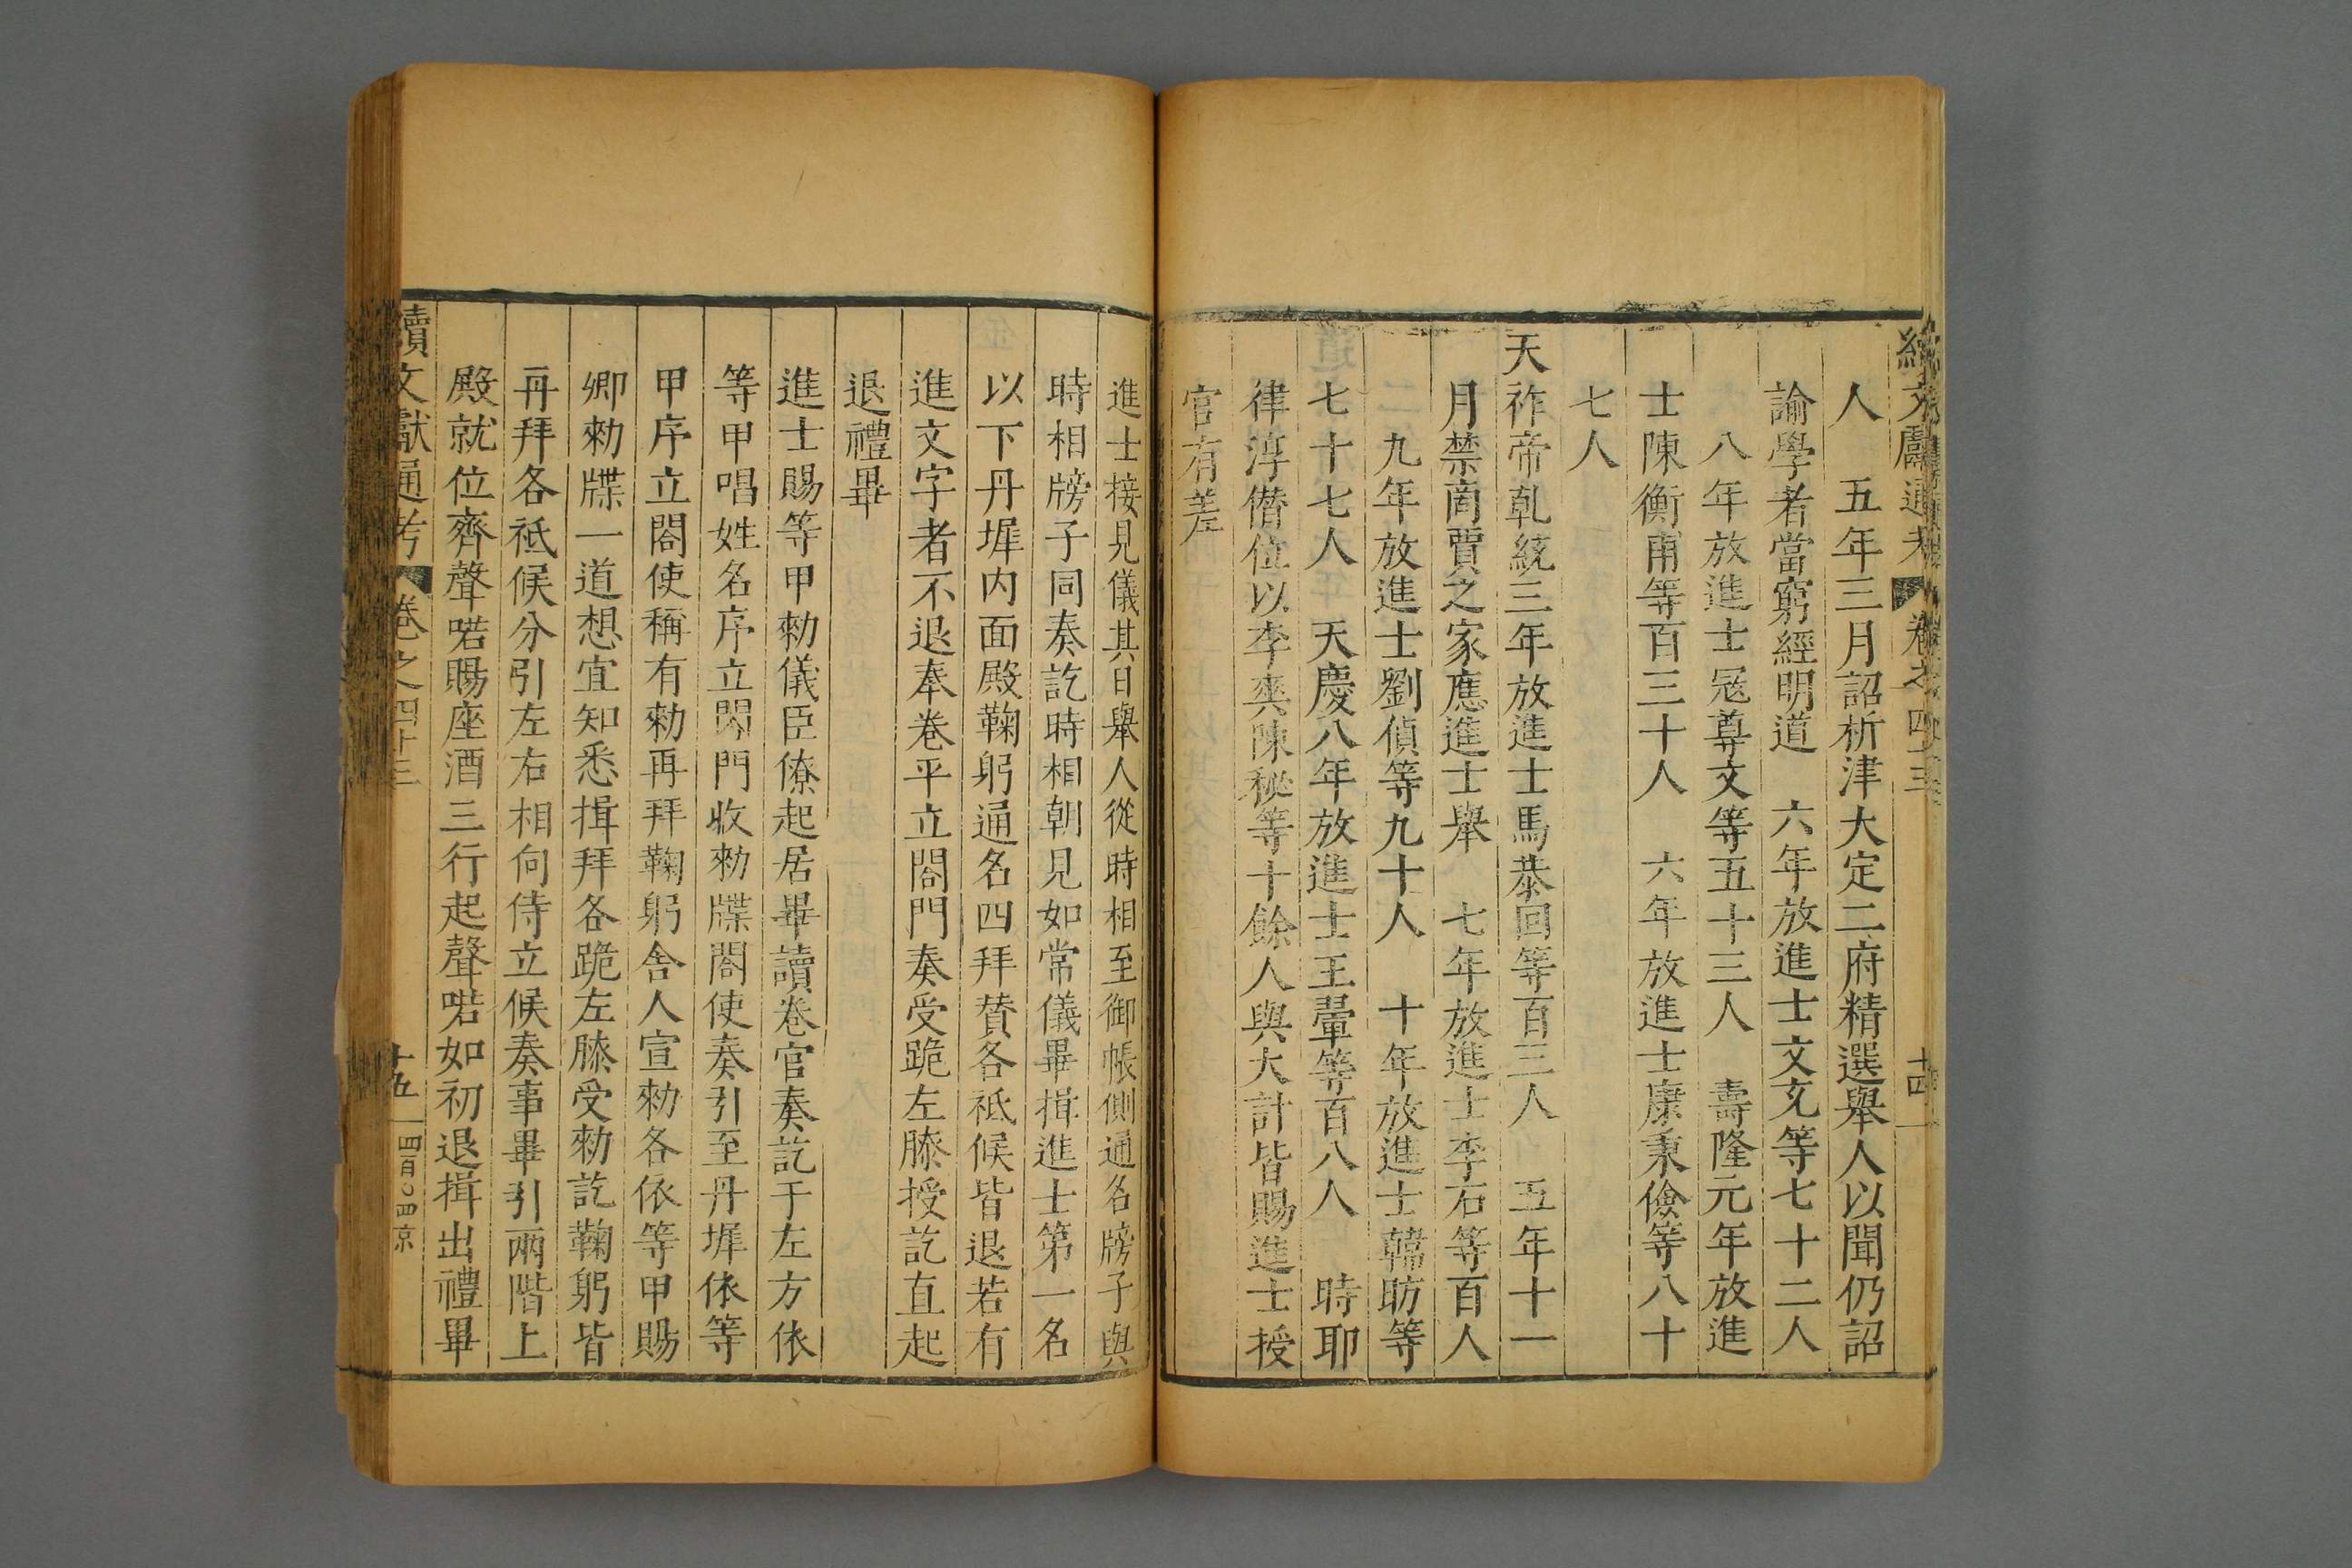 續文獻通考 卷之四十三 十四
人 五年三月詔析津大定二府精選舉人以聞仍詔
諭學者當窮經明道 六年放進士文充等七十二人
八年放進士冦尊文等五十三人 壽隆元年放進
士陳衡甫等百三十人 六年放進士康秉儉等八十
七人
天祚帝乹統三年放進士馬恭回等百三人 五年十一
月禁商賈之家應進士舉 七年放進士李石等百人
九年放進士劉偵等九十人 十年放進士韓昉等
七十七人 天慶八年放進士王翬等百八人 時耶
律淳僭位以李奭陳秘等十餘人與大計皆賜進士授
官有差
進士接見儀其日舉人從時相至御帳側通名牓子與
時相牓子同奏訖時相朝見如常儀畢揖進士第一名
以下丹墀内面殿鞠躬通名四拜賛各祗候皆退若有
進文字者不退奉卷平立閤門奏受跪左膝授訖直起
退禮畢
進士賜等甲勑儀臣僚起居畢讀卷官奏訖于左方依
等甲唱姓名序立閤門收勑牒閤使奏引至丹墀依等
甲序立閤使稱有勑再拜鞠躬舍人宣勑各依等甲賜
卿勑牒一道想宜知悉揖拜各跪左膝受勑訖鞠躬皆
再拜各祗候分引左右相向侍立候奏事畢引兩階上
殿就位齊聲喏賜座酒三行起聲喏如初退揖出禮畢
續文獻通考 卷之四十三 十五 四百〇四 京